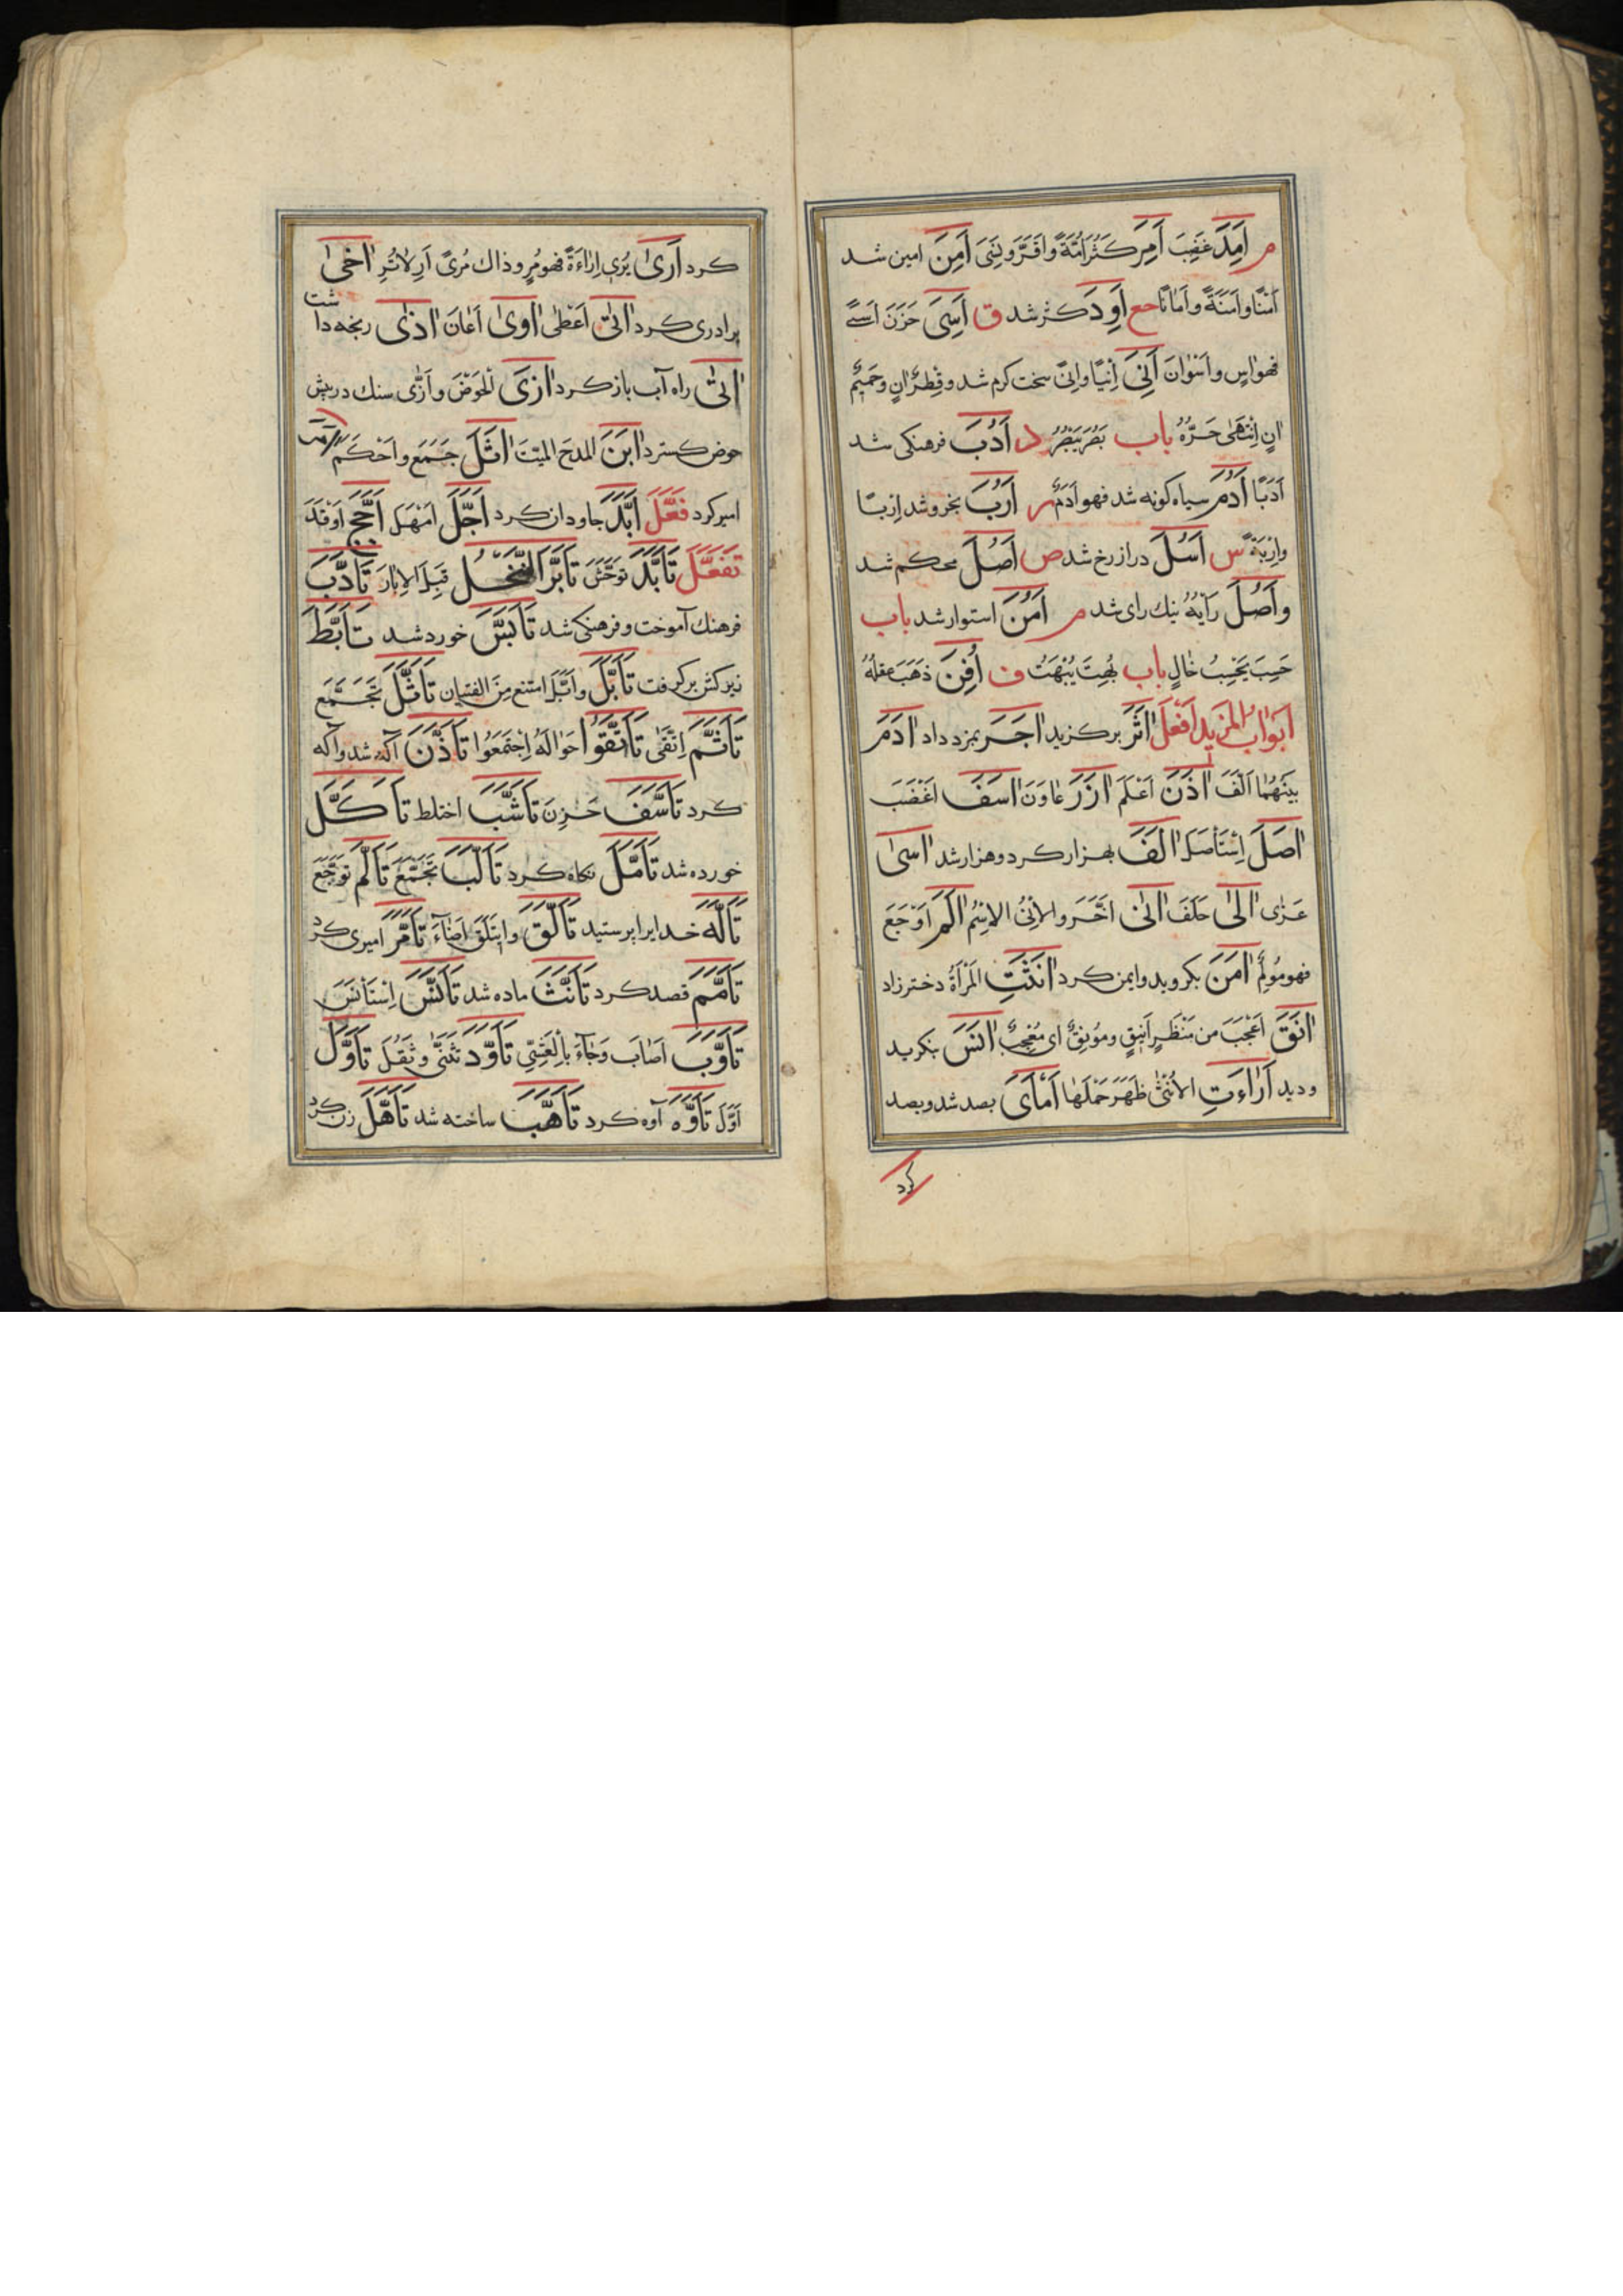 م اَمِدَ غَضِبَ اَمِرَ كَثُرَ اُمَّةً وَاقَرَّ وَنَسِىَ اَمِنَ امين شد
اَمْنًا وَاَمَنَةً وَاَمَانًا جع اَوِدَ كژ شد ق اَسِىَ حَزِنَ اَسىً
فهواٰسٍ واَسْوَان اَنِىَ اِنْيًا وانىً سخت كرم شد و قِطرٌ اٰنٍ وحَمِيْمٌ
اٰنٍ اِنْتَهٰى حَرُّهُ باب بَصُرَ يَبْصُرُ د اَدُبَ فرهنكى شد
اَدَبًا اَدُمَ سياه كونه شد فهواٰدَمُ ر اَرُبَ بخرد شد اِرَبًا
وَاِرْبَةً س اَسُلَ دراز رخ شد ص اَصُلَ محكم شد
وَاَصُلَ رَأْيُهُ نيك راى شد م اَمُنَ استوار شد باب
حَسِبَ يَحْسِبُ خَالٍ باب بُهِتَ يُبْهَتُ ف اُفِنَ ذَهَبَ عقلهُ
اَبْوَابُ المَزِيد اَفْعَلَ اٰثَرَ بركزيد اٰجَرَ بمزد داد اٰدَمَ
بَيْنَهُمَا اَلَّفَ اٰذَنَ اَعْلَمَ اٰزَرَ عَاوَنَ اٰسَفَ اَغْضَبَ
اٰصَلَ اِسْتَأْصَلَ اٰلَفَ بهزار كرد و هزار شد اٰسىٰ
عَزّٰى اٰلىٰ حَلَفَ اٰنىٰ اَخَّرَ والاِنىُ الاسْمُ اٰلَمَ اَوْجَعَ
فهومُولِمٌ اٰمَنَ بكرويد وايمن كرد اٰنَثَتِ المَرْأَةُ دختر زاد
اٰنَقَ اَعْجَبَ من مَنْظَرٍ اَنِيْقٍ ومُونِقٌ اى مُعْجِبٌ اٰنَسَ بنكريد
و ديد اَرْاَءَتِ الاُنْثٰى ظَهَرَ حَمْلُهَا اَمْأَىَ بصد شد و بصد
كرد
كرد اَرىٰ يُرِى اِرَاءَةً فهومُرٍ وذاك مُرىً اَرِ لاٰتُرِ اٰخىٰ
برادرى كرد اٰتىٰ اَعْطٰى اٰوىٰ اَعَانَ اٰذىٰ رنجه داشت
اٰتىٰ راه آب باز كرد اٰزىَ الحَوْضَ وَاَزّٰى سنك در پيش
حوض كسترد اَبَّنَ المدحَ الميّتَ اَثَّلَ جَمَعَ واَحْكَمَ اَمَّرَ
امير كرد فَعَّلَ اَبَّدَ جاودان كرد اَجَّلَ اَمْهَلَ اَجَّجَ اَوْقَدَ
تَفَعَّلَ تَأَبَّدَ تَوَحَّشَ تَأَبَّرَ النَّخْلُ قَبِلَ الاِبَارَ تَأَدَّبَ
فرهنك آموخت و فرهنكى شد تَأَبَّسَ خورد شد تَأَبَّطَ
زير كش بركرفت تَأَبَّلَ وَاَبَّلَ امتنع مِنَ الغشيان تَأَثَّلَ تَجَمَّعَ
تَأَثَّمَ اِتَّقٰى تَأَنَّقُوا حَوَالَهُ اِجْتَمَعُوا تَأَذَّنَ آكه شد و آكه
كرد تَأَسَّفَ حَزِنَ تَأَشَّبَ اختلط تَأَكَّلَ
خورده شد تَأَمَّلَ نكاه كرد تَأَلَّبَ تَجَمَّعَ تَأَلَّمَ تَوَجَّعَ
تَأَلَّهَ خدايرا پرستيد تَأَلَّقَ وَايتَلَقَ اَضَآءَ تَأَمَّرَ اميرى كرد
تَأَمَّمَ قصد كرد تَأَنَّثَ ماده شد تَأَنَّسَ اِسْتَأْنَسَ
تَأَوَّبَ اَصَابَ وَجَآءَ بِالْعَشِىِّ تَأَوَّدَ تثنّىٰ وثَقُلَ تَأَوَّلَ
اَوَّلَ تَأَوَّهَ آوه كرد تَأَهَّبَ ساخته شد تَأَهَّلَ زن كرد